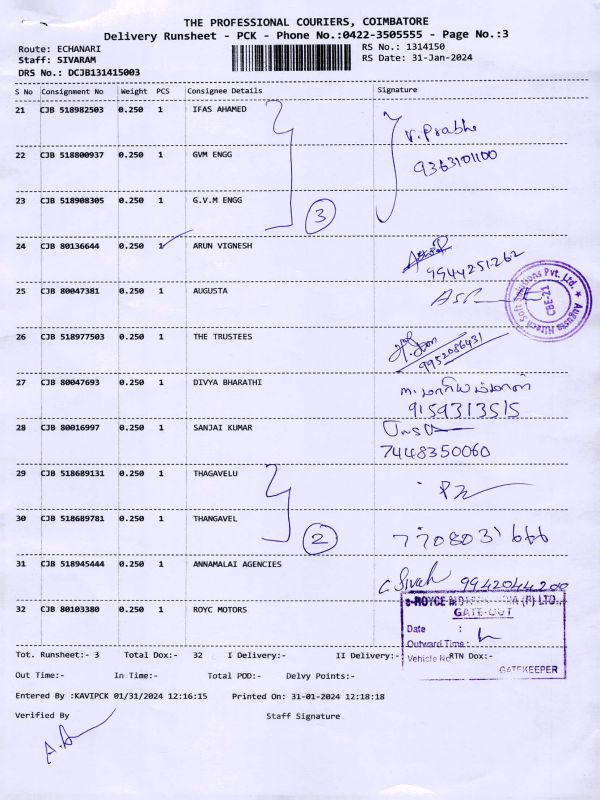 THE PROFESSIONAL COURIERS, COIMBATORE
Delivery Runsheet - PCK - Phone No.:0422-3505555 - Page No.:3
Route: ECHANARI RS No.: 1314150
Staff: SIVARAM RS Date: 31-Jan-2024
DRS No.: DCJB131415003
S No Consignment No Weight PCS Consignee Details Signature
21 CJB 518982503 0.250 1 IFAS AHAMED
V. Prabhu
22 CJB 518800937 0.250 1 GVM ENGG 9363101100
23 CJB 518908305 0.250 1 G.V.M ENGG
3
24 CJB 80136644 0.250 1 ARUN VIGNESH
9944251262
25 CJB 80047381 0.250 1 AUGUSTA
Augusta Hitech Soft Solutions Pvt. Ltd. ★
CBE-21
26 CJB 518977503 0.250 1 THE TRUSTEES
9952086431
27 CJB 80047693 0.250 1 DIVYA BHARATHI
9159313515
28 CJB 80016997 0.250 1 SANJAI KUMAR
7448350060
29 CJB 518689131 0.250 1 THAGAVELU
30 CJB 518689781 0.250 1 THANGAVEL 2 7708031666
31 CJB 518945444 0.250 1 ANNAMALAI AGENCIES
C Sivah 9942044200
32 CJB 80103380 0.250 1 ROYC MOTORS
GATE-OUT
Date :
Outward Time :
Vehicle No
GATEKEEPER
Tot. Runsheet:- 3 Total Dox:- 32 I Delivery:- II Delivery:- RTN Dox:-
Out Time:- In Time:- Total POD:- Delvy Points:-
Entered By :KAVIPCK 01/31/2024 12:16:15 Printed On: 31-01-2024 12:18:18
Verified By Staff Signature